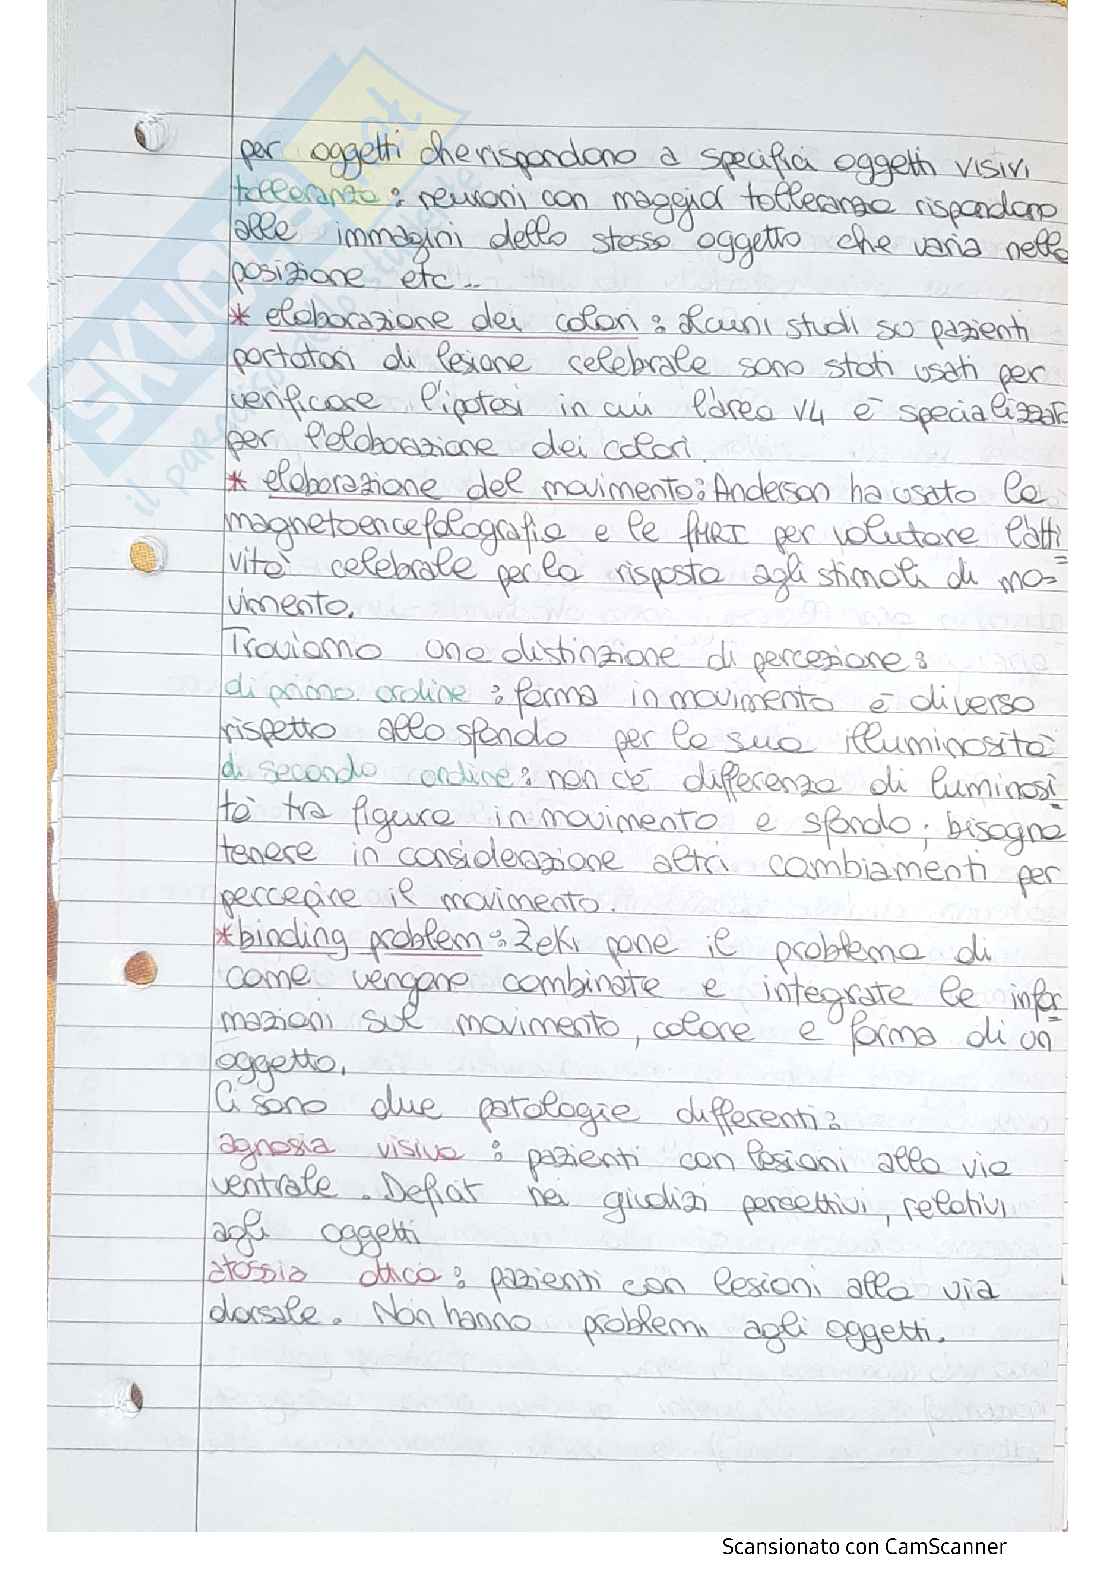 per oggetti che rispondono a specifici oggetti visivi
tolleranza: neuroni con maggior tolleranza rispondono
alle immagini dello stesso oggetto che varia nella
posizione etc..
* elaborazione dei colori: alcuni studi su pazienti
portatori di lesione celebrale sono stati usati per
verificare l'ipotesi in cui l'area V4 è specializzata
per l'elaborazione dei colori.
* elaborazione del movimento: Anderson ha usato la
magnetoencefalografia e la fMRI per valutare l'atti
vità celebrale per la risposta agli stimoli di mo=
vimento.
Troviamo una distinzione di percezione:
di primo ordine: forma in movimento è diverso
rispetto allo sfondo per la sua illuminosità
di secondo ordine: non c'è differenza di luminosi
tà tra figura in movimento e sfondo; bisogna
tenere in considerazione altri cambiamenti per
percepire il movimento.
* binding problem: Zeki pone il problema di
come vengono combinate e integrate le infor
mazioni sul movimento, colore e forma di un
oggetto.
Ci sono due patologie differenti:
agnosia visiva: pazienti con lesioni alla via
ventrale. Deficit nei giudizi percettivi, relativi
agli oggetti
atassia ottica: pazienti con lesioni alla via
dorsale. Non hanno problemi agli oggetti.
SKUOLA.net
Scansionato con CamScanner